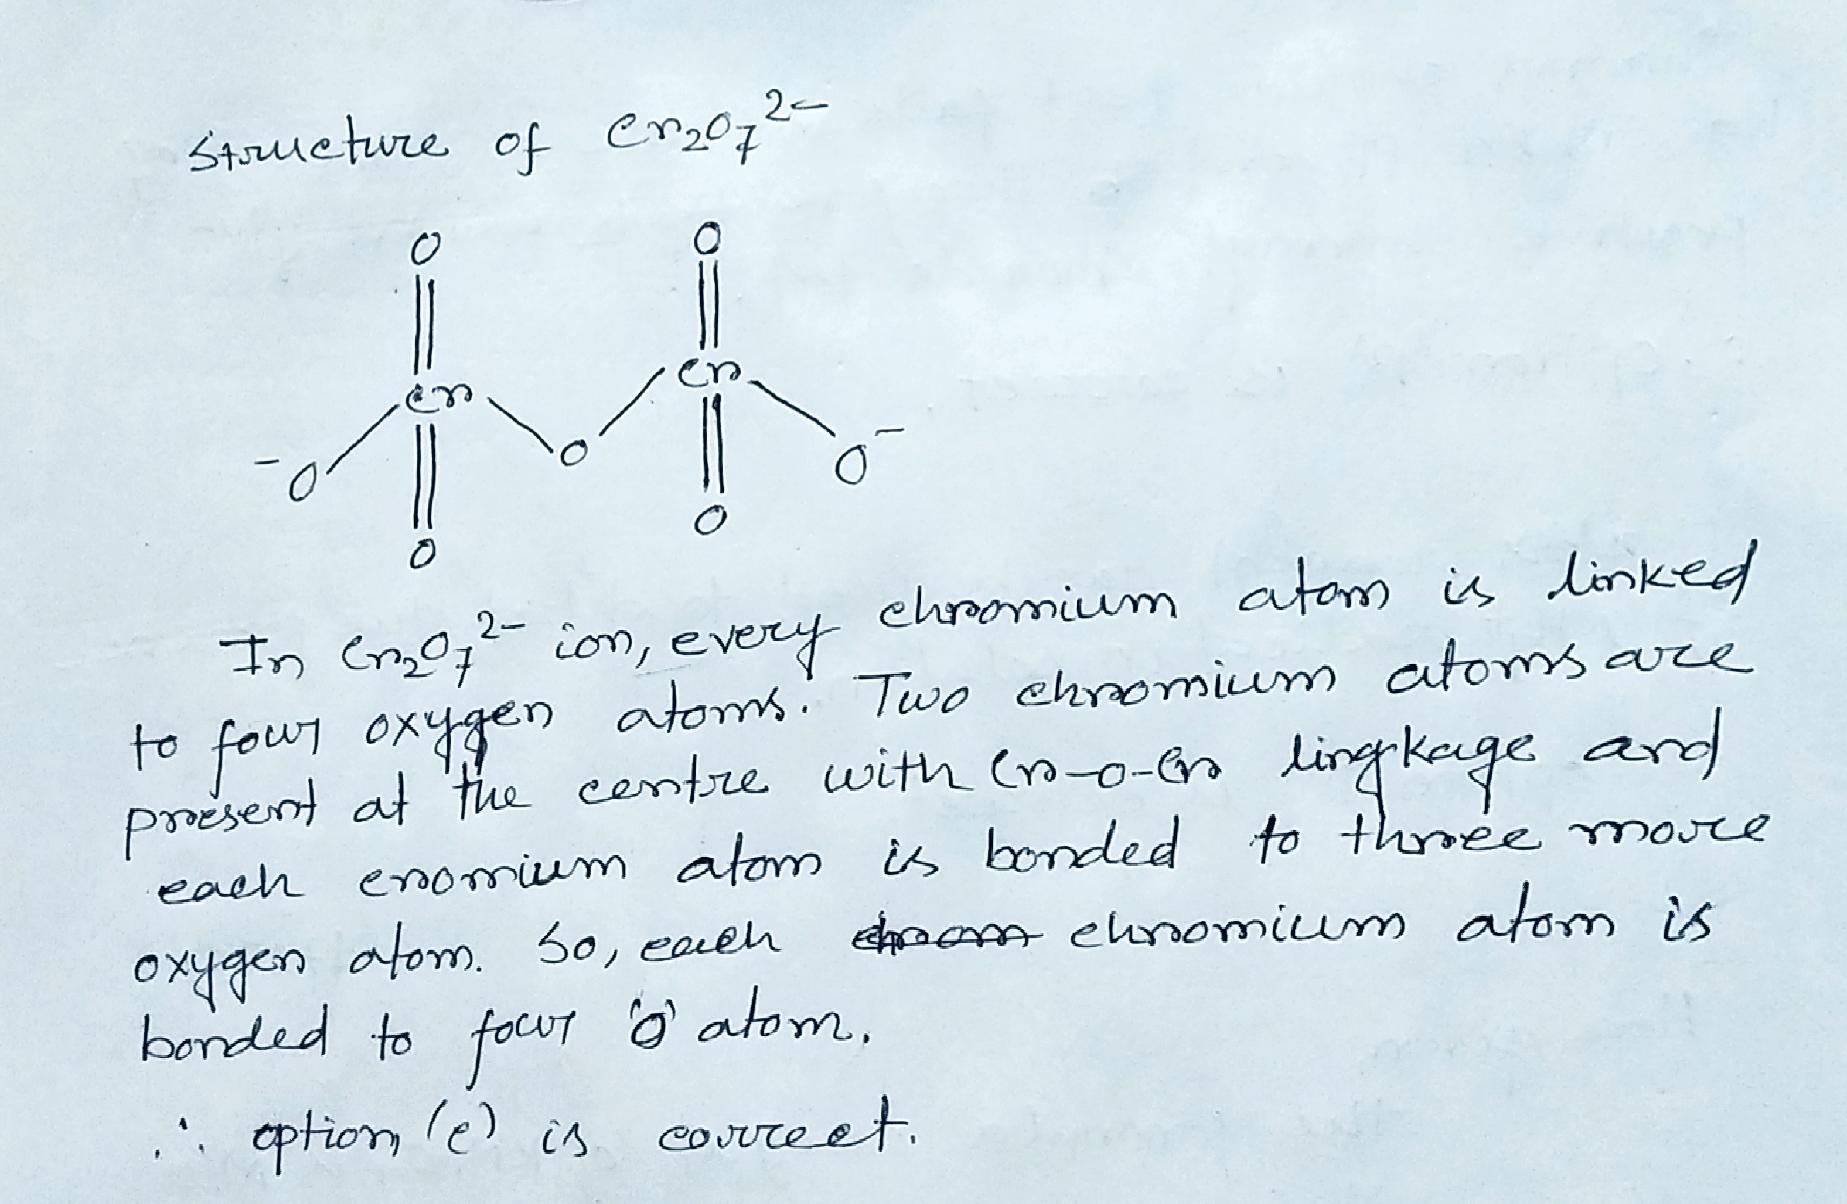 Structure of Cr2O7 2-
O O
Cr Cr
-O O O-
O O
In Cr2O7 2- ion, every chromium atom is linked
to four oxygen atoms. Two chromium atoms are
present at the centre with Cr-O-Cr lingkage and
each cromium atom is bonded to three more
oxygen atom. So, each chromium atom is
bonded to four 'O' atom.
∴ option (c) is correct.